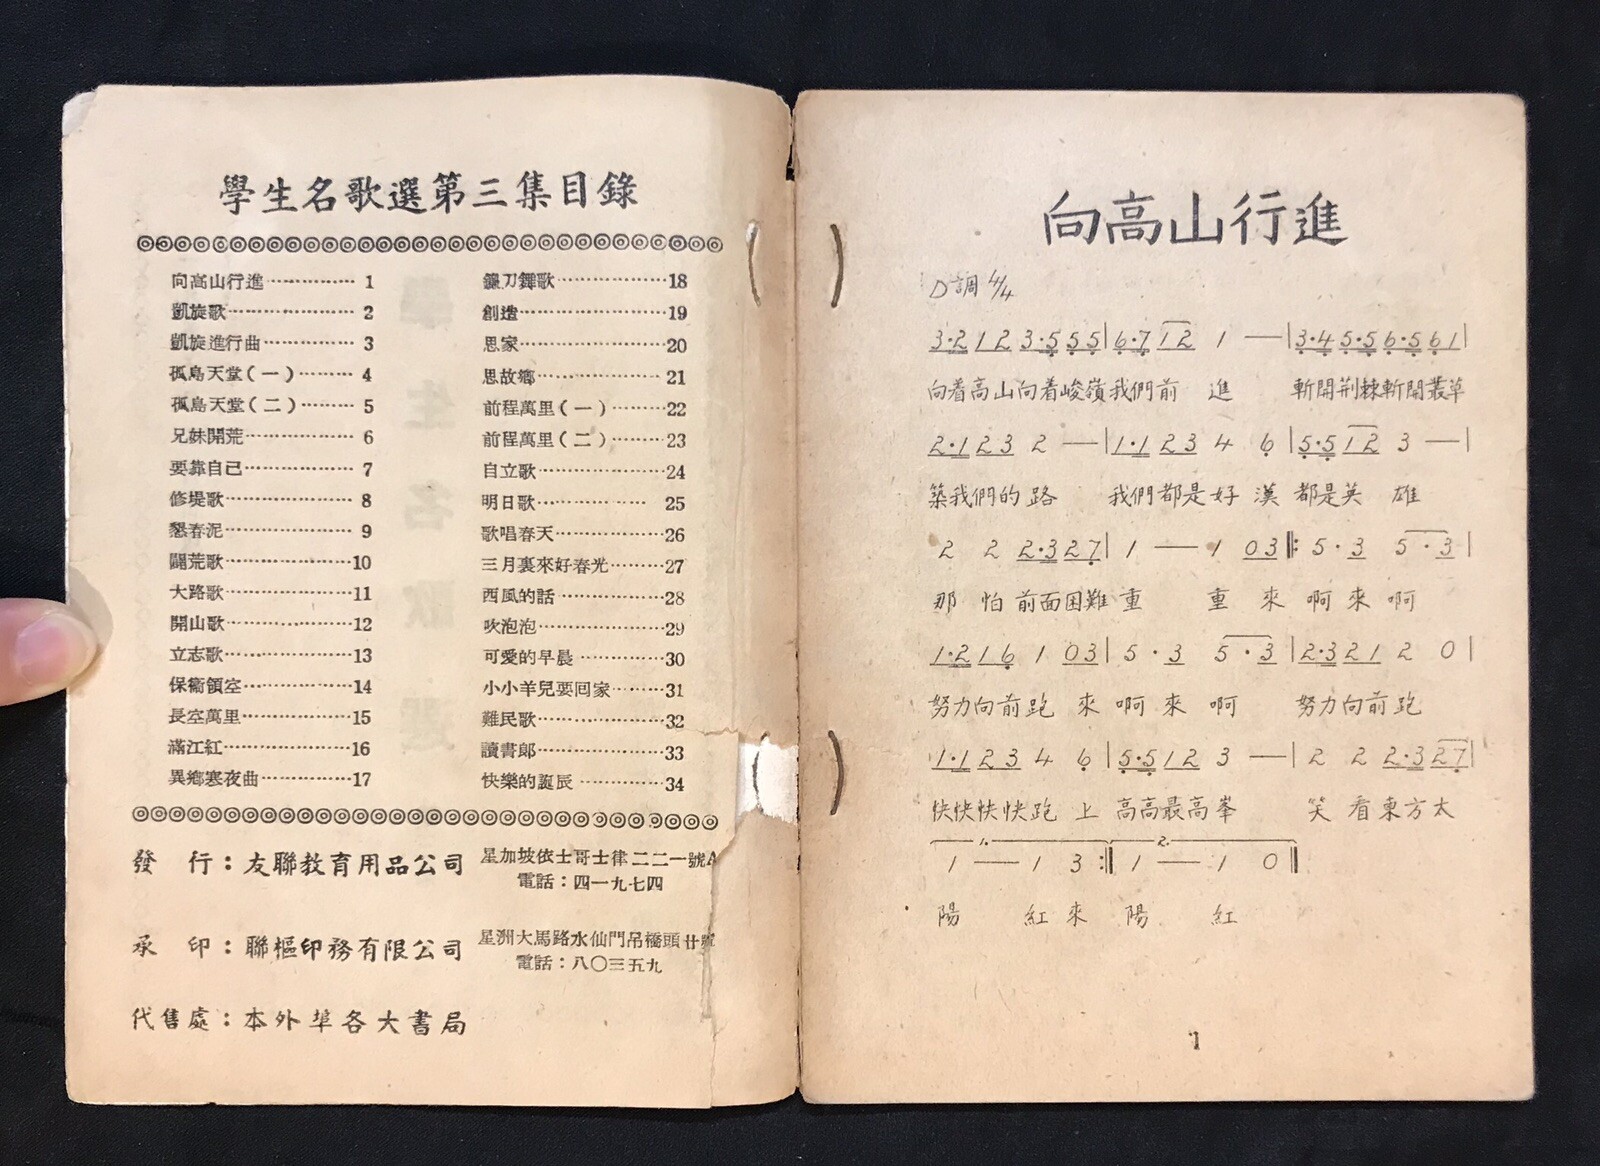 學生名歌選第三集目錄
向高山行進 1
凱旋歌 2
凱旋進行曲 3
孤島天堂(一) 4
孤島天堂(二) 5
兄妹開荒 6
要靠自己 7
修堤歌 8
懇春泥 9
闢荒歌 10
大路歌 11
開山歌 12
立志歌 13
保衞領空 14
長空萬里 15
滿江紅 16
異鄉寒夜曲 17
鐮刀舞歌 18
創造 19
思家 20
思故鄉 21
前程萬里(一) 22
前程萬里(二) 23
自立歌 24
明日歌 25
歌唱春天 26
三月裏來好春光 27
西風的話 28
吹泡泡 29
可愛的早晨 30
小小羊兒要回家 31
難民歌 32
讀書郎 33
快樂的誕辰 34
發 行：友聯教育用品公司
星加坡依士哥士律二二一號A
電話：四一九七四
承 印：聯樞印務有限公司
星洲大馬路水仙門吊橋頭廿號
電話：八〇三五九
代售處：本外埠各大書局
向高山行進
D調 4/4
3·2 1 2 3·5 5 5|6·7 1 2 1 —|3·4 5·5 6·5 6 1|
向着高山向着峻嶺我們前 進 斬開荆棘斬開叢草
2·1 2 3 2 —|1·1 2 3 4 6|5·5 1 2 3 —|
築我們的路 我們都是好 漢 都是英 雄
2 2 2·3 2 7|1 — 1 0 3‖: 5·3 5·3|
那 怕 前面困難 重 重 來 啊 來 啊
1·2 1 6 1 0 3|5·3 5·3|2·3 2 1 2 0|
努力向前跑 來 啊 來 啊 努力向前跑
1·1 2 3 4 6|5·5 1 2 3 —|2 2 2·3 2 7|
快快快快跑 上 高高最高峯 笑 看 東方太
1. 2.
1 — 1 3 :‖1 — 1 0‖
陽 紅 來 陽 紅
1